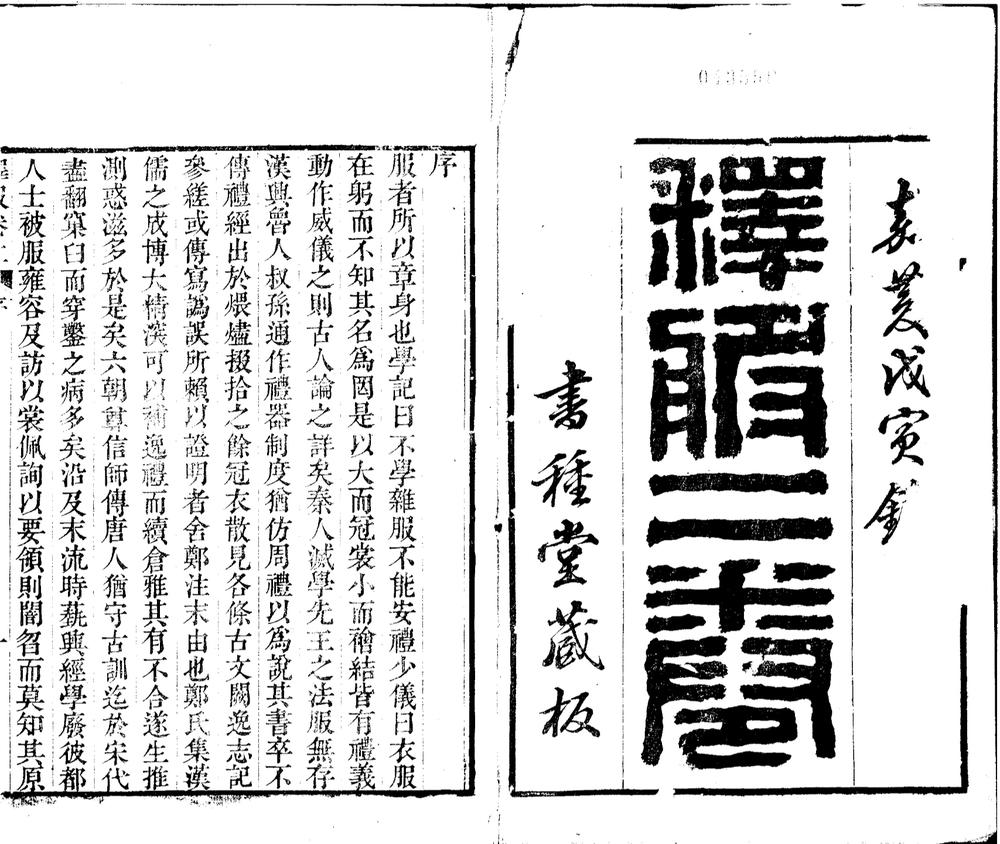 嘉慶戊寅
釋服二卷
書種堂藏板
序
服者所以章身也學記曰不學雜服不能安禮少儀曰衣服
在躬而不知其名爲罔是以大而冠裳小而襘結皆有禮義
動作威儀之則古人論之詳矣秦人滅學先王之法服無存
漢興魯人叔孫通作禮器制度猶仿周禮以爲說其書卒不
傳禮經出於煨燼掇拾之餘冠衣散見各條古文闕逸志記
參縒或傳寫譌誤所賴以證明者舍鄭注末由也鄭氏集漢
儒之成博大精深可以補逸禮而續倉雅其有不合遂生推
測惑滋多於是矣六朝尊信師傳唐人猶守古訓迄於宋代
盡翻窠臼而穿鑿之病多矣沿及末流時蓺興經學廢彼都
人士被服雍容及訪以裳佩詢以要領則闇曶而莫知其原
釋服卷上 序 一